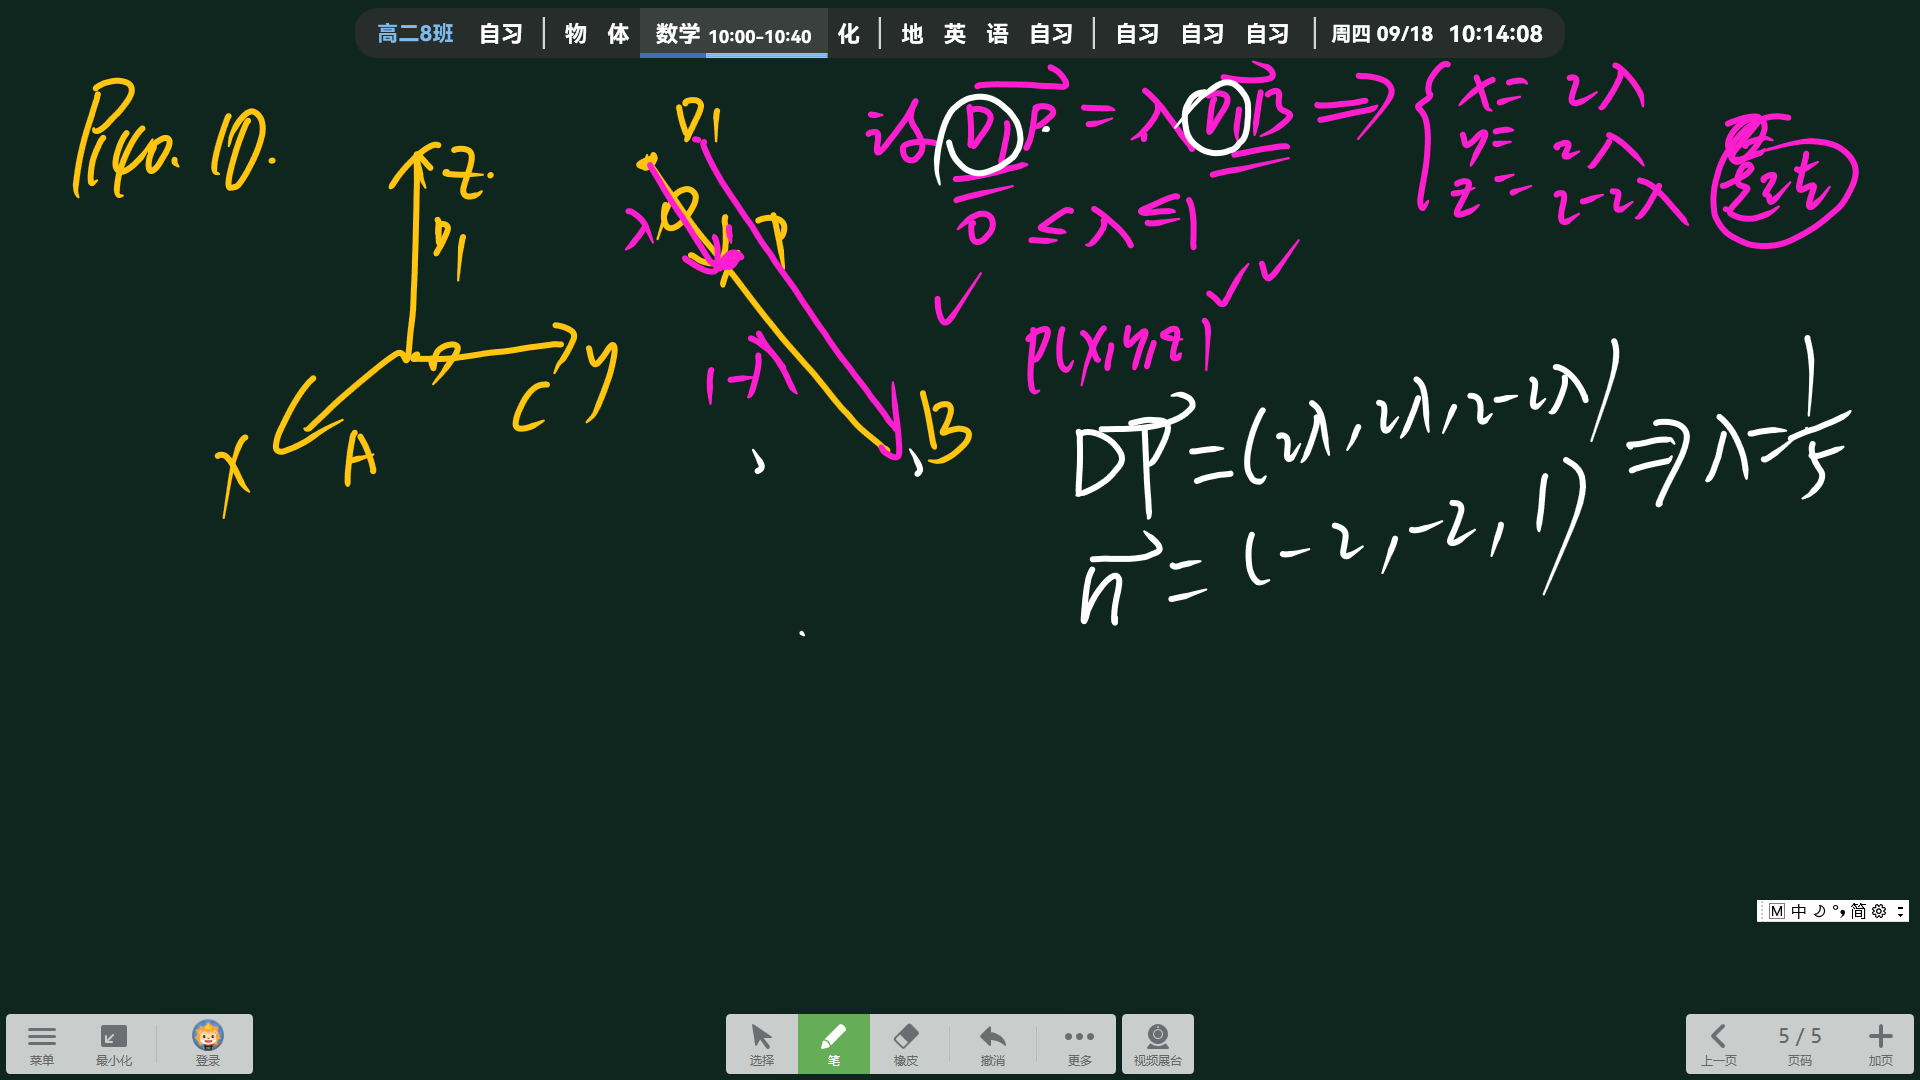 高二8班 自习 | 物 体 数学 10:00-10:40 化 | 地 英 语 自习 | 自习 自习 自习 | 周四 09/18 10:14:08
P140. 10.
Z.
D1
D
y
C
x
A
D1
P
λ
1-λ
B
设 D1P = λ D1B ⇒ { x = 2λ
y = 2λ
z = 2-2λ
0 ≤ λ ≤ 1
P(x, y, z)
DP = (2λ, 2λ, 2-2λ) ⇒ λ = 1/5
n = (-2, -2, 1)
M 中 简
菜单 最小化 登录 选择 笔 橡皮 撤消 更多 视频展台 上一页 5 / 5 页码 加页